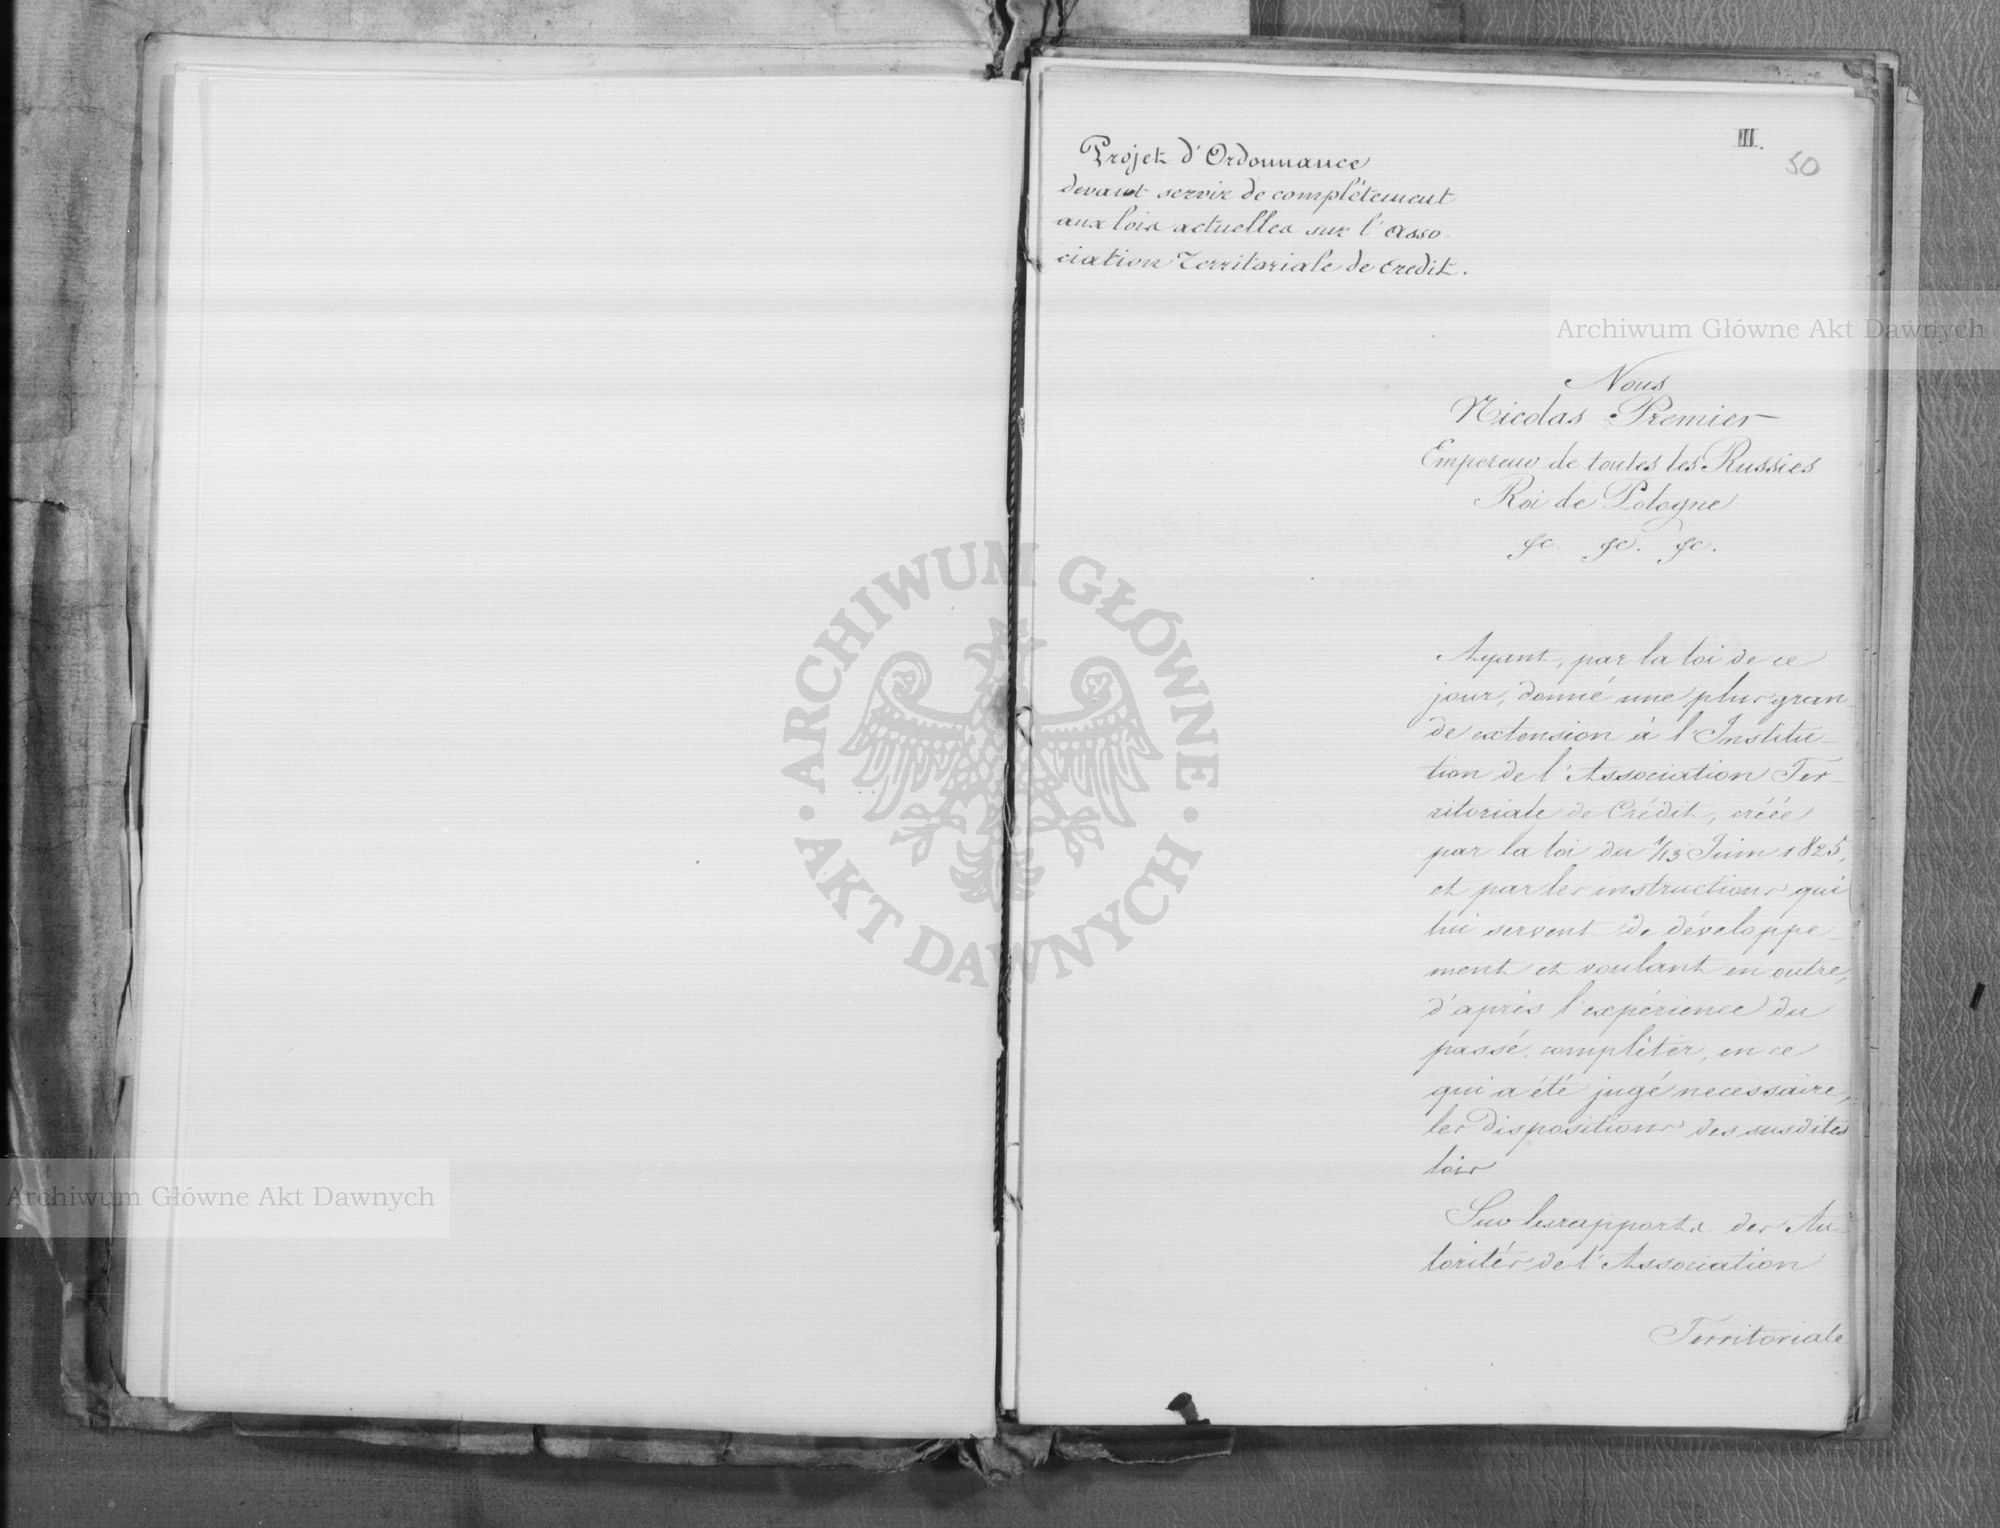 III.
50
Projet d'Ordonnance
devant servir de complétement
aux lois actuelles sur l'Asso-
ciation Territoriale de Credit.
Archiwum Główne Akt Dawnych
Nous
Nicolas Premier
Empereur de toutes les Russies
Roi de Pologne
&c. &c. &c.
Ayant, par la loi de ce
jour, donné une plus gran-
de extension à l'Institu-
tion de l'Association Ter-
ritoriale de Crédit, créée
par la loi du 1/13 Juin 1825,
et par les instructions qui
lui servent de développe-
ment et voulant en outre,
d'après l'expérience du
passé, compléter, en ce
qui a été jugé necessaire,
les dispositions des susdites
lois
Sur les rapports des Au-
torités de l'Association
Territoriale
ARCHIWUM GŁÓWNE
AKT DAWNYCH
Archiwum Główne Akt Dawnych